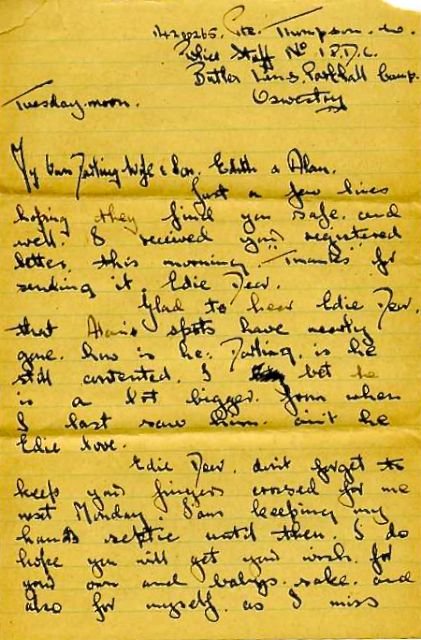 14200265. Pte. Thompson.
Office Staff No 1 P.D.C.
Butler Lines, Parkhall Camp.
Oswestry
Tuesday-noon.
My Own Darling Wife & Son, Edith & Alan.
Just a few lines
hoping they find you safe. and
well. I received your registered
letter, this morning. Thanks for
sending it, Edie Dear.
Glad to hear Edie Dear,
that Alan's spots have nearly
gone. how is he. Darling. is he
still contented. I bet he
is a lot bigger from when
I last saw him. ain't he
Edie love.
Edie Dear. don't forget to
keep your fingers crossed for me
next Monday. I am keeping my
hands septic until then. I do
hope you will get your wish. for
your own and babys. sake. and
also for myself. as I miss